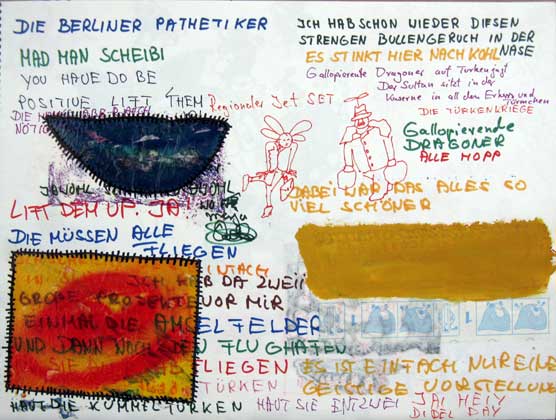 DIE BERLINER PATHETIKER
MAD MAN SCHEIBI
YOU HAVE DO BE
POSITIVE LIFT THEM
DIE
NÖTIG
Regionaler Jet SET
JAWOHL JAWOHL
LIFT DEM UP. JA!
DIE MÜSSEN ALLE
FLIEGEN
EINFACH
ICH HAB DA ZWEII
GROßE PROJEKTE VOR MIR
EINMAL DIE AMSELFELDER
UND DANN NOCH DEN FLUGHAFEN
FLIEGEN
TÜRKEN
HAUT DIE KÜMMELTÜRKEN HAUT SIE ENTZWEI
ICH HAB SCHON WIEDER DIESEN
STRENGEN BULLENGERUCH IN DER
NASE
ES STINKT HIER NACH KOHL
Gallopierente Dragoner auf Türkenjagt
Der Sultan sitzt in der
Kaserne in all den Erkern und
Türmchen
DIE TÜRKENKRIEGE
Gallopierende
DRAGONER
ALLE HOPP
DABEI WAR DAS ALLES SO
VIEL SCHÖNER
ES IST EINFACH NUR EINE
GEISTIGE VORSTELLUNG
JAI HEIY
DIDEL DAY